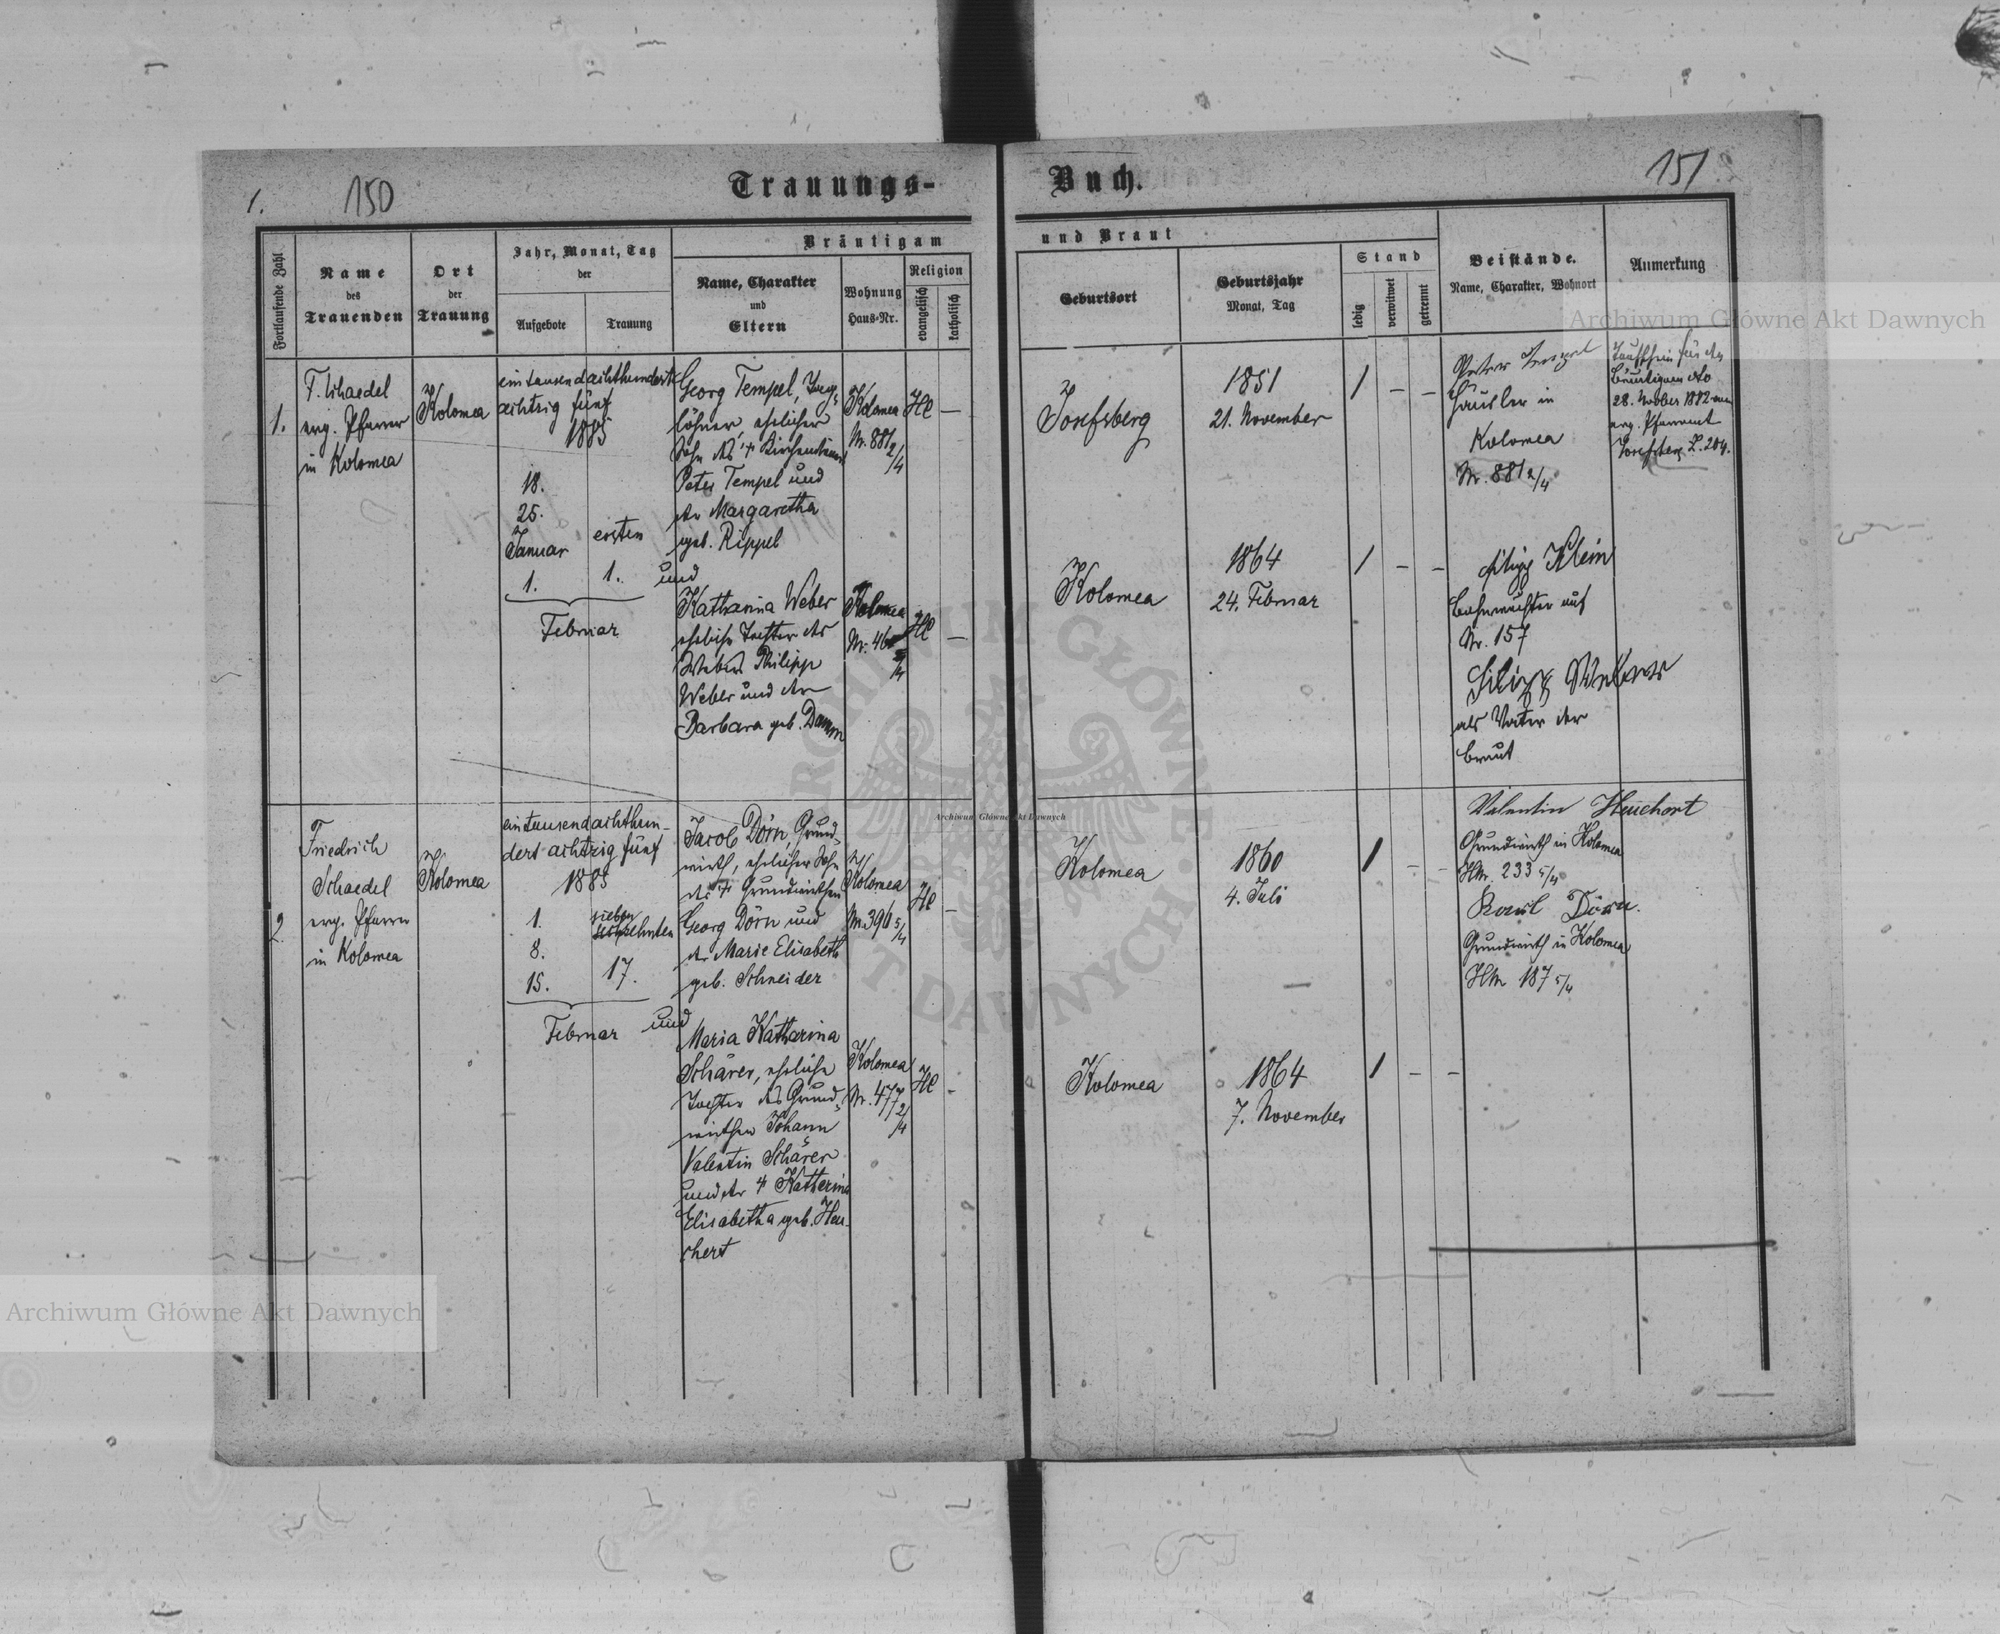 1.
150
Trauungs-
Buch.
151
Fortlaufende Zahl
Name
des
Trauenden
Ort
der
Trauung
Jahr, Monat, Tag
der
Aufgebote
Trauung
Bräutigam
Name, Charakter
und
Eltern
Wohnung
Haus-Nr.
Religion
evangelisch
katholisch
und Braut
Geburtsort
Geburtsjahr
Monat, Tag
Stand
ledig
verwitwet
getrennt
Beistände.
Name, Charakter, Wohnort
Anmerkung
1.
F. Schaedel
evg. Pfarrer
in Kolomea
Kolomea
eintausendachthundert
achtzig fünf
1885
18.
25.
Januar
1.
ersten
1.
Februar
Georg Tempel, Tag-
löhner, ehelicher
Sohn des †
Peter Tempel und
der Margaretha
geb. Rippel
und
Katharina Weber
eheliche Tochter des
Webers Philipp
Weber und der
Barbara geb. Damm
Kolomea
Nr. 881 2/4
Kolomea
Nr. 46
/4
HC
—
HC
—
Josefsberg
1851
21. November
1
–
–
Kolomea
1864
24. Februar
1
–
–
Peter Tempel
Häusler in
Kolomea
Nr. 881 2/4
Filipp Klein
Bahnwächter auf
Nr. 157
Filipp Weber
als Vater der
Braut
Taufschein für den
Bräutigam dto
28. 1882 vom
evg. Pfarramt
Josefsberg Z. 204.
2
Friedrich
Schaedel
evg. Pfarrer
in Kolomea
Kolomea
eintausendachthun-
dert achtzig fünf
1885
1.
8.
15.
sieben
zehnten
17.
Februar
Jacob Dörn, Grund-
wirth, ehelicher Sohn
des † Grundwirthen
Georg Dörn und
der Marie Elisabeth
geb. Schneider
und
Maria Katharina
Schärer, eheliche
Tochter des Grund-
wirthen Johann
Valentin Schärer
und der † Katherina
Elisabetha geb. Heu-
chert
Kolomea
Nr. 396 5/4
Kolomea
Nr. 477
2/4
HC
–
HC
–
Kolomea
1860
4. Juli
1
–
–
Kolomea
1864
7. November
1
–
–
Valentin Heuchert
Grundwirth in Kolomea
HNr. 233 5/4
Karl Dörn.
Grundwirth in Kolomea
HNr 187 5/4
Archiwum Główne Akt Dawnych
Archiwum Główne Akt Dawnych
Archiwum Główne Akt Dawnych
ARCHIWUM GŁÓWNE AKT DAWNYCH